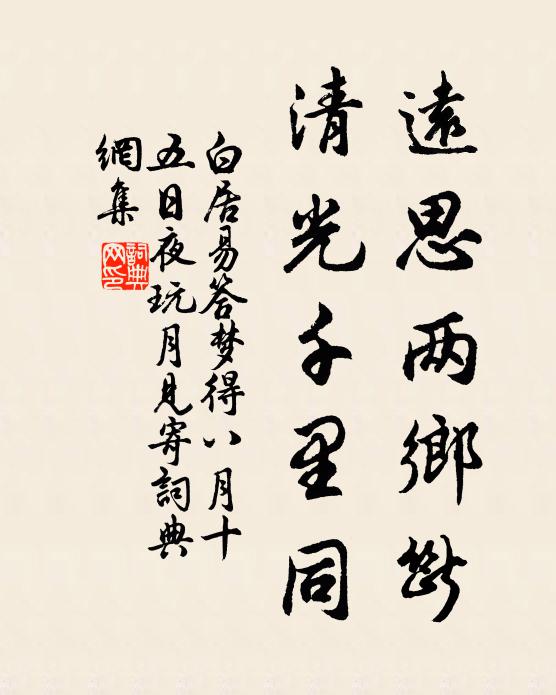 遠思两鄉斷
清光千里同
白居易答梦得八月十
五日夜玩月見寄詞典
網集
詞典
网印